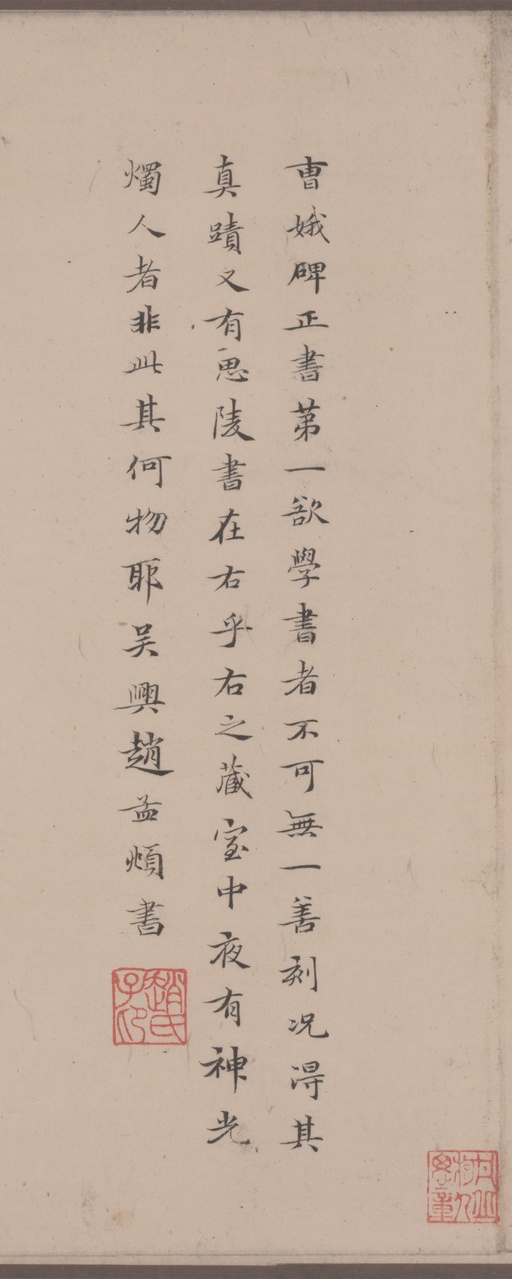 曺娥碑正書第一欲學書者不可無一善刻况得其
真蹟又有思陵書在右乎右之藏室中夜有神光
燭人者非此其何物耶吴興趙孟頫書
趙氏子印